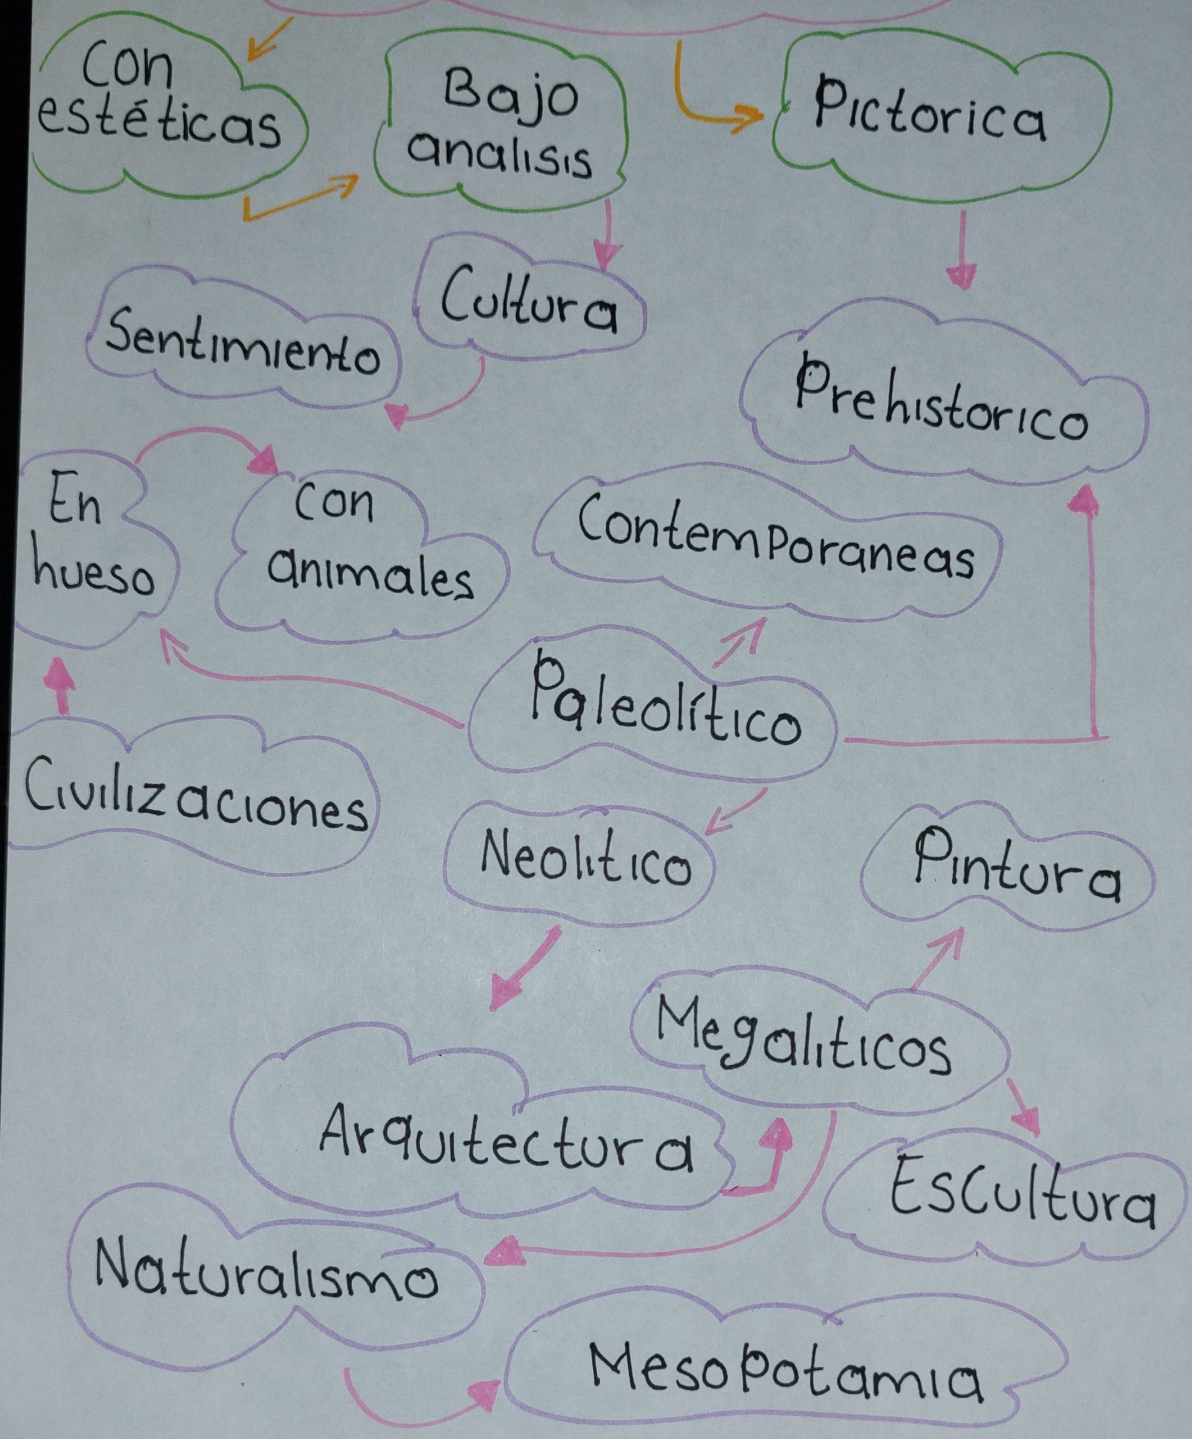 con
estéticas
Bajo
analisis
Pictorica
Cultura
Sentimiento
Prehistorico
En
hueso
con
animales
Contemporaneas
Paleolítico
Civilizaciones
Neolitico
Pintura
Megaliticos
Arquitectura
Escultura
Naturalismo
Mesopotamia